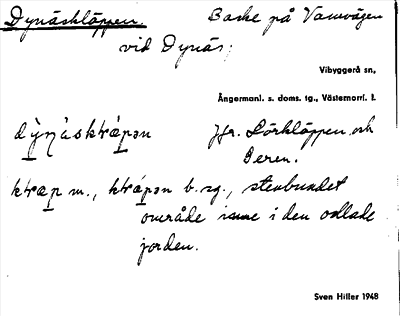 Dynäsklöppen. Backe på Vansvägen
vid Dynäs;
Vibyggerå sn,
Ångermanl. s. doms. tg., Västernorrl. l.
Jfr. Lörklöppen och
Geren.
m., b. sg., stenbundet
område inne i den odlade
jorden.
Sven Hiller 1948